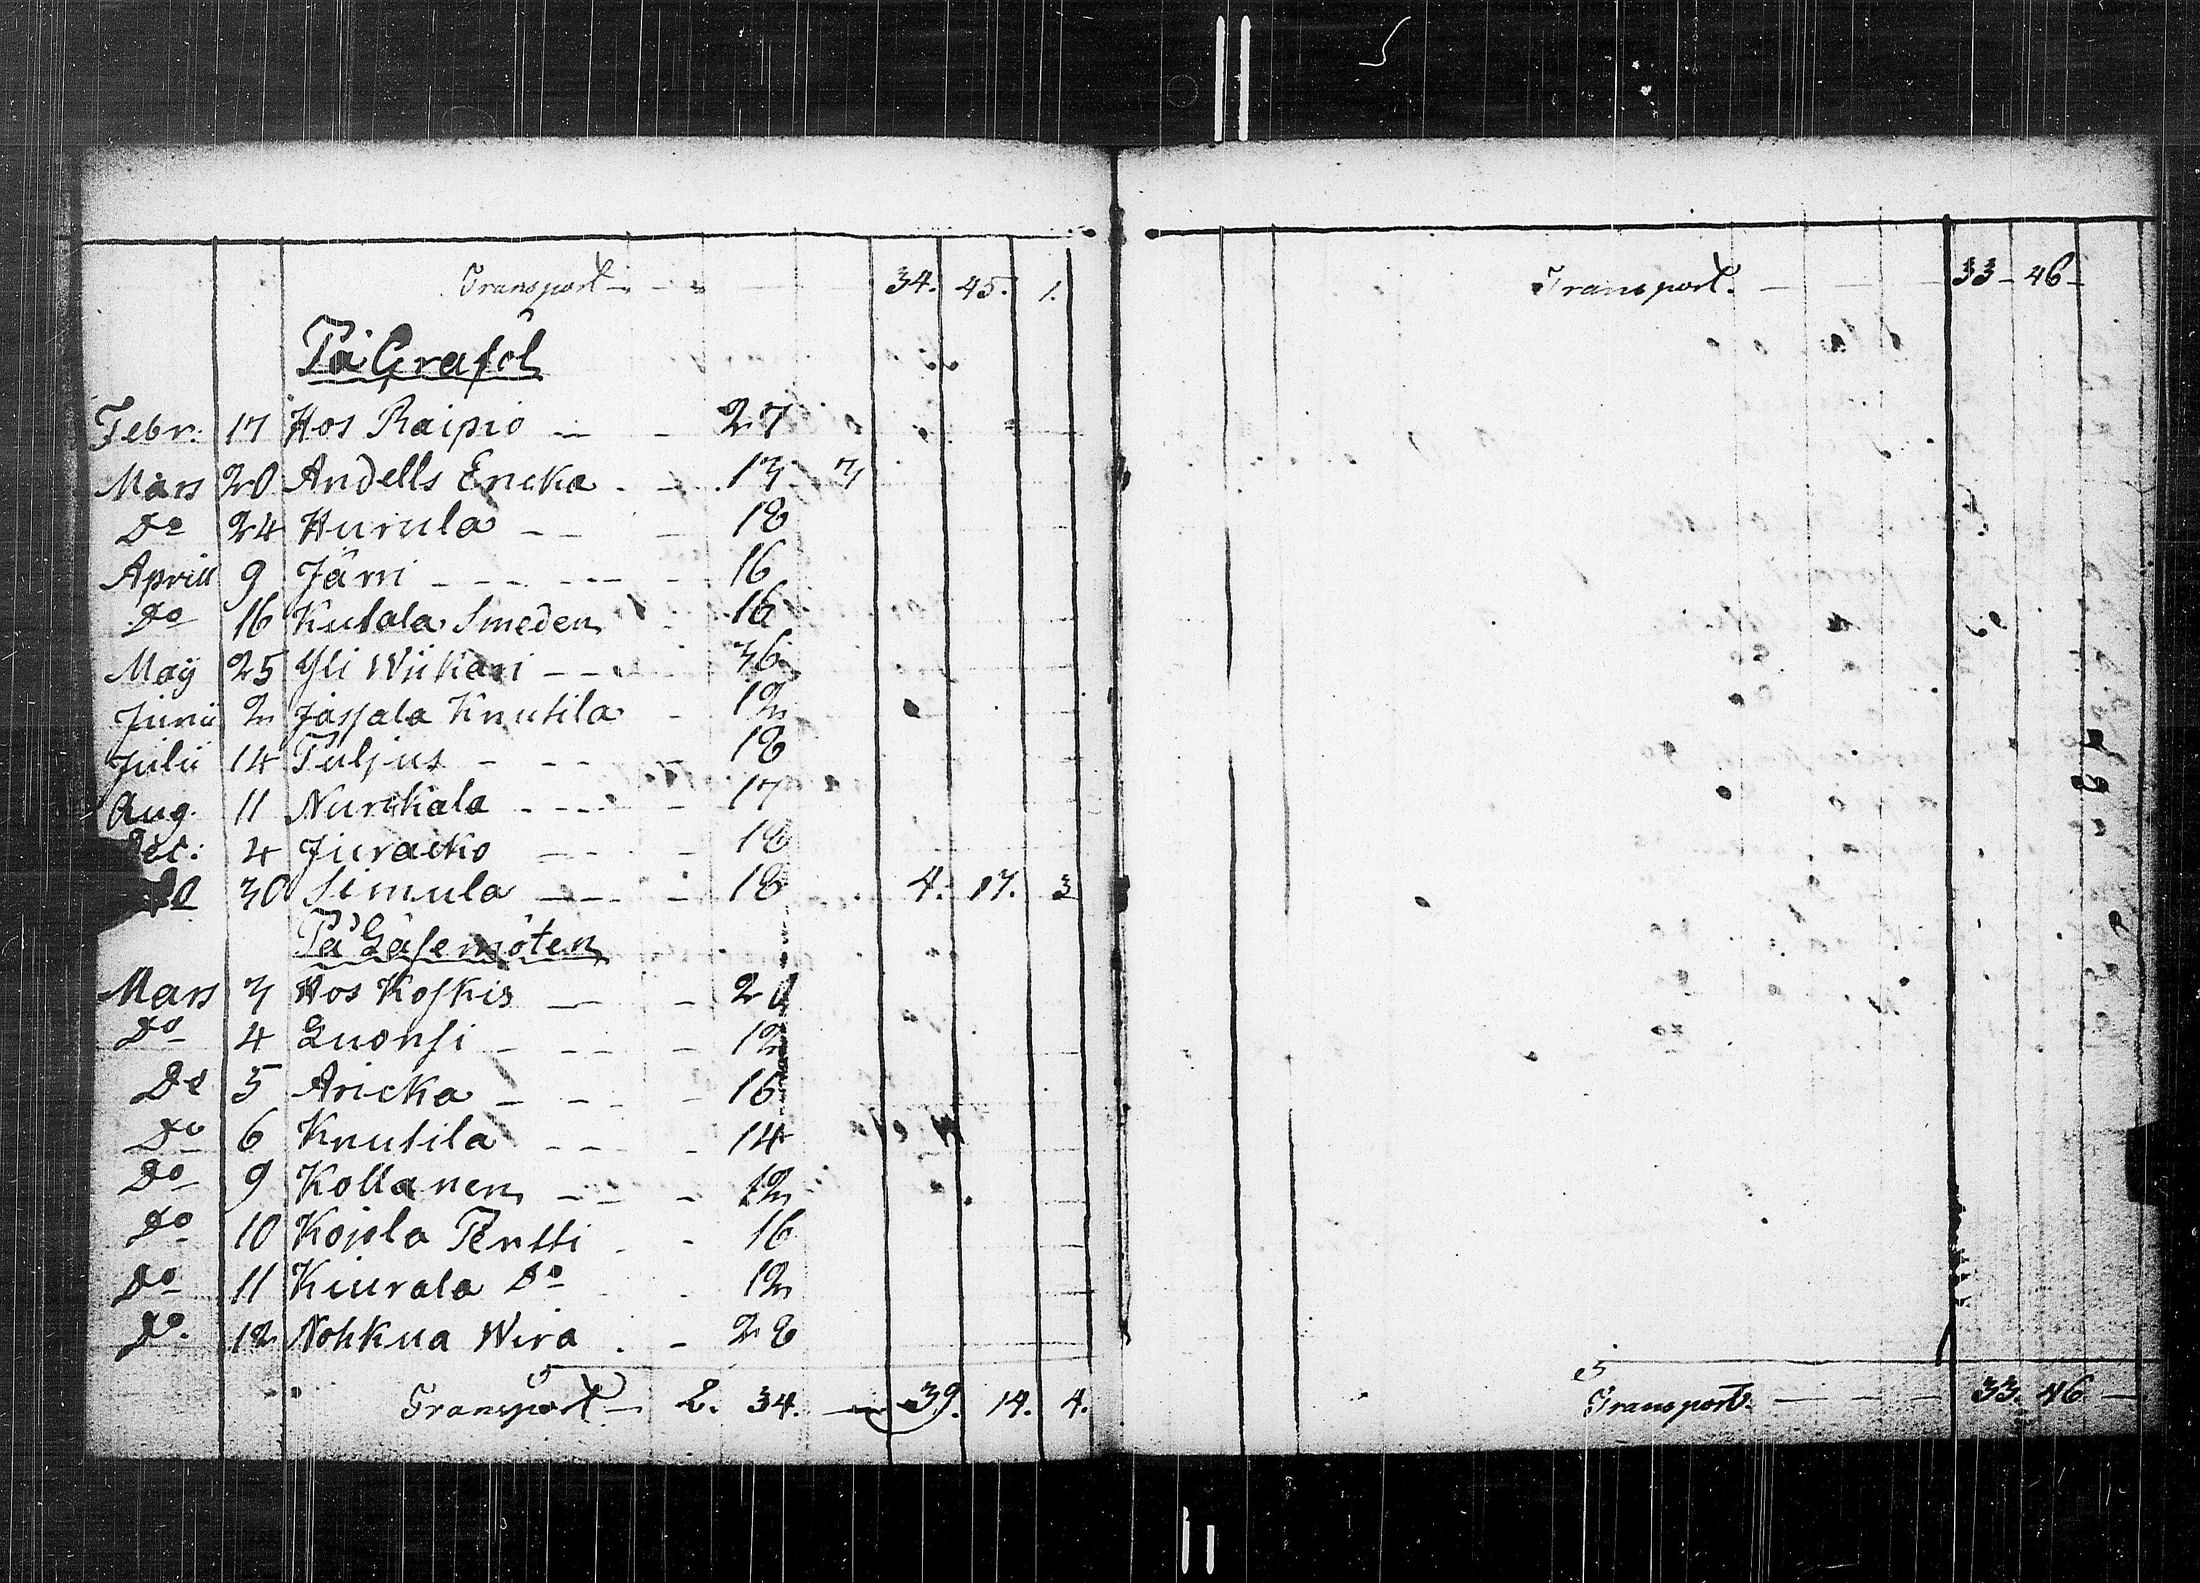 Transport - - - 34. 45. 1.
På Graföl
Febr. 17 Hos Raipio - - 27
Mars 20 Andells Ericka - - 13 3
Do 24 Hurula - - - 18
Aprill 9 Järri - - - - - 16
Do 16 Kutala Smeden 16
Maÿ 25 Yli Wiikari - - - 36
Junii 2 Jassala Knutila - 12
Julii 14 Tuljus - - - - 18
Aug. 11 Nurckala - - - - 17
Dec: 4 Juracko - - - 18
Do 30 Simula - - - 18 4. 17. 3
På Läsemöten
Mars 3 Hos Koskis - - 21
Do 4 Luonsi - - - - 12
Do 5 Aricka - - - - 16
Do 6 Knutila - - - 14
Do 9 Kollanen - - - 12
Do 10 Kojola Pertti - - 16
Do 11 Kiurala Do - - 12
Do 12 Nohkua Wira - - 28
Transport - 2. 34. - 39. 14. 4.
Transport. - - - 33 - 46 -
Transport - - - - 33. 46 -